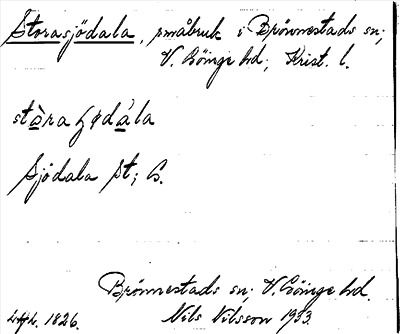 Storasjödala, småbruk i Brönnestads sn;
V. Göinge hd; Krist. l.
stàra ɧødàla
Sjödala St; G.
Brönnestads sn; V. Göinge hd.
1826. Nils Nilsson 1933.